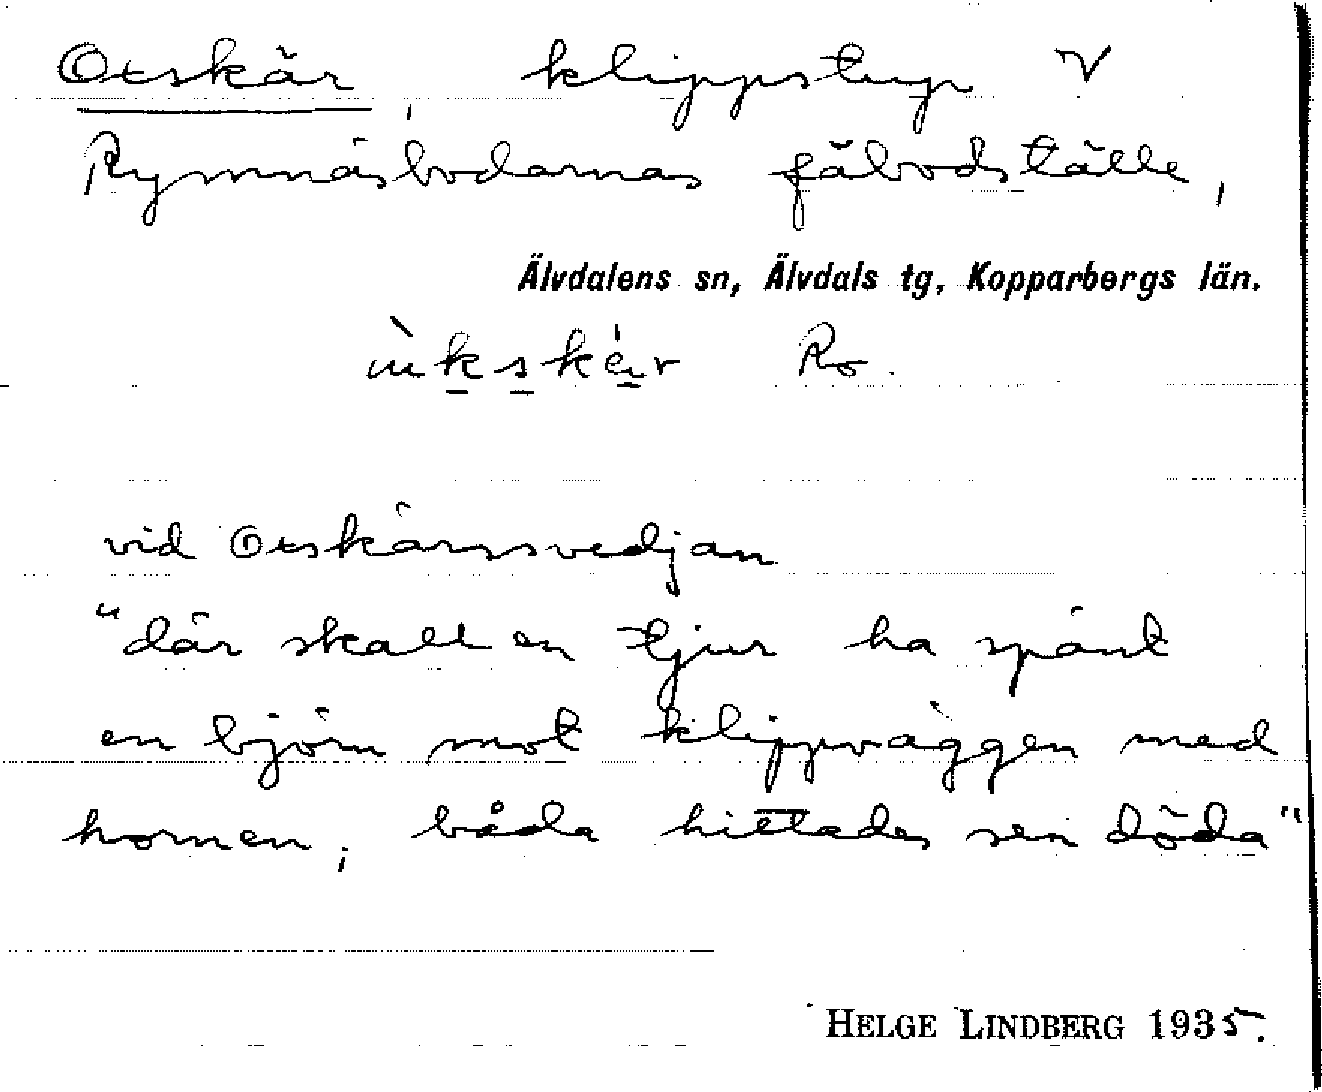 Oxskär, klippstup V
Rymnäsbodarnas fäbodställe,
Älvdalens sn, Älvdals tg. Kopparbergs län.
Ro.
vid Oxskärssvedjan
"där skall en tjur ha spänt
en björn mot klippväggen med
hornen; båda hittades sen döda"
HELGE LINDBERG 1935.